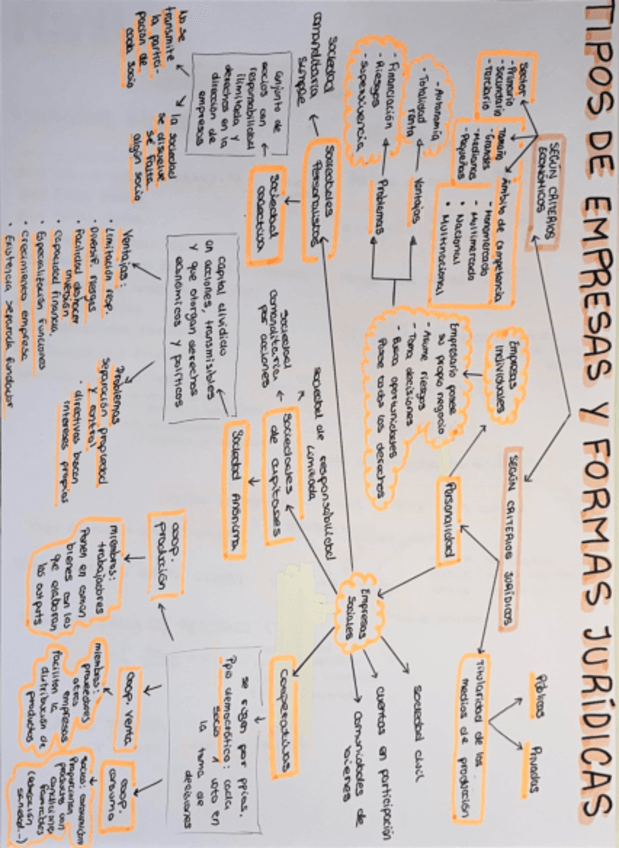 TIPOS DE EMPRESAS Y FORMAS JURÍDICAS
SEGÚN CRITERIOS
ECONÓMICOS
Sector
- Primario
- Secundario
- Terciario
Tamaño
- Grandes
- Medianas
- Pequeñas
Ámbito de competencia
- Monomercado
- Multimercado
• Nacional
• Multinacional
SEGÚN CRITERIOS JURÍDICOS
Personalidad
Titularidad de los
medios de producción
Públicas
Privadas
Empresas
Individuales
Empresario posee
su propio negocio
- Asume riesgos
- Toma decisiones
- Busca oportunidades
Posee todos los derechos
Ventajas
- Autonomía
- Totalidad
renta
Problemas
- Financiación
- Riesgos
- Supervivencia
Empresas
Sociales
sociedad civil
cuentas en participación
comunidades de
bienes
Sociedades
Personalistas
sociedad
comanditaria
simple
Sociedad
colectiva
Conjunto de
socios con
responsabilidad
ilimitada y
derechos en la
dirección de
empresas
No se
transmite
la partici-
pación de
cada socio
la sociedad
se disuelve
si falta
algún socio
Sociedades
de capitales
sociedad de responsabilidad
limitada
sociedad
comanditaria
por acciones
Sociedad Anónima
capital dividido
en acciones, transmisibles
y que otorgan derechos
económicos y políticos
Ventajas:
• Limitación resp.
• Diversif. riesgos
• Facilidad deshacer
inversión
• Capacidad financia.
• Especialización funciones
• Crecimiento empresa
• Existencia separada fundador
Problemas
separación propiedad
y control
• directivos buscan
intereses propios
Cooperativas
se rigen por ppios.
Ppio democrático: cada
socio 1 voto en
la toma de
decisiones
coop.
producción
miembros:
trabajadores
Ponen en común
bienes con los
que elaboran
los outputs
coop. venta
miembros:
proveedores
otras
empresas
facilitan la
distribución de
productos
coop.
consumo
socio: consumidor
Proporcionan
productos con
condiciones
favorables